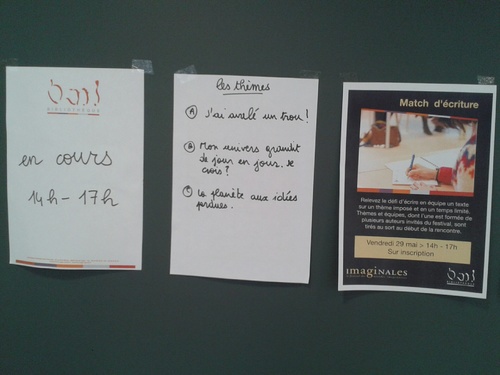 bmi
BIBLIOTHÈQUE
en cours
14h - 17h
Les thèmes
A J'ai avalé un trou !
B Mon univers grandit
de jour en jour. Je
crois ?
C La planète aux idées
Match d'écriture
Relevez le défi d'écrire en équipe un texte
sur un thème imposé et en un temps limité.
Thèmes et équipes, dont l'une est formée de
plusieurs auteurs invités du festival, sont
tirés au sort au début de la rencontre.
Vendredi 29 mai > 14h - 17h
Sur inscription
imaGiNALES
bmi